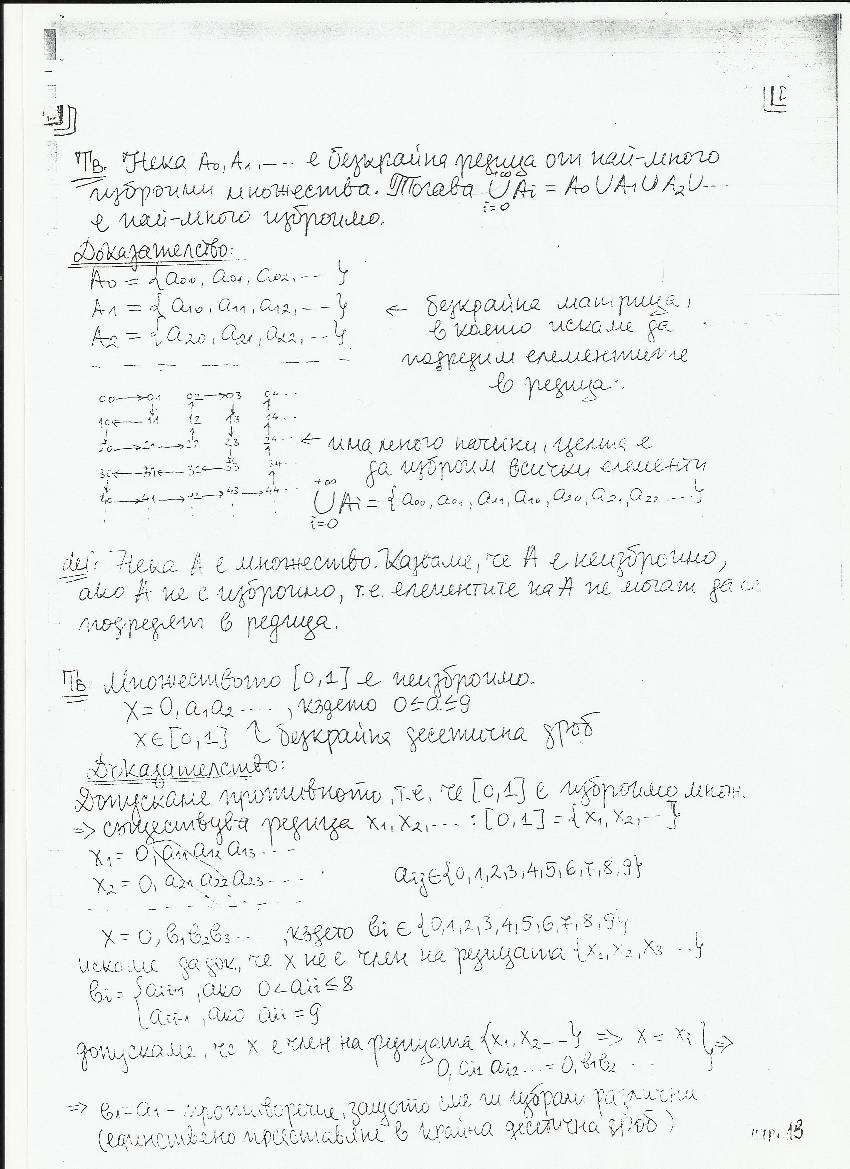 Тв. Нека A₀, A₁, ... е безкрайна редица от най-много
изброими множества. Тогава ⋃_{i=0}^{+∞} Ai = A₀∪A₁∪A₂∪...
е най-много изброимо.
Доказателство:
A₀ = {a₀₀, a₀₁, a₀₂, ...}
A₁ = {a₁₀, a₁₁, a₁₂, ...}
A₂ = {a₂₀, a₂₁, a₂₂, ...}
← безкрайна матрица,
в която искаме да
подредим елементите
в редица.
00→01 02→03 04...
10←11 12 13 14...
20→21→22 23 24...
30←31←32←33 34...
40→41→42→43→44...
← има много начини, целта е
да изброим всички елементи
⋃_{i=0}^{+∞} Ai = {a₀₀, a₀₁, a₁₁, a₁₀, a₂₀, a₂₁, a₂₂ ...}
def: Нека A е множество. Казваме, че A е неизброимо,
ако A не е изброимо, т.е. елементите на A не могат да се
подредят в редица.
Тв Множеството [0,1] е неизброимо.
x = 0, a₁a₂ ...., където 0≤a≤9
x∈[0,1] безкрайна десетична дроб
Доказателство:
Допускаме противното, т.е. че [0,1] е изброимо множ.
=> съществува редица x₁, x₂, ... : [0,1] = {x₁, x₂, ...}
x₁ = 0, a₁₁ a₁₂ a₁₃ ....
x₂ = 0, a₂₁ a₂₂ a₂₃ .... aij∈{0,1,2,3,4,5,6,7,8,9}
x = 0, в₁в₂в₃ ... , където вi ∈ {0,1,2,3,4,5,6,7,8,9}
искаме да док, че x не е член на редицата {x₁, x₂, x₃ ...}
вi = { aii+1, ако 0<aii≤8
aii-1, ако aii = 9
допускаме, че x е член на редицата {x₁, x₂ ...} => x = xi } =>
0, ai₁ ai₂ ... = 0, в₁в₂ ...
=> - противоречие, защото сме ги избрали различни
(единствено представяне в крайна десетична дроб)
стр. 13